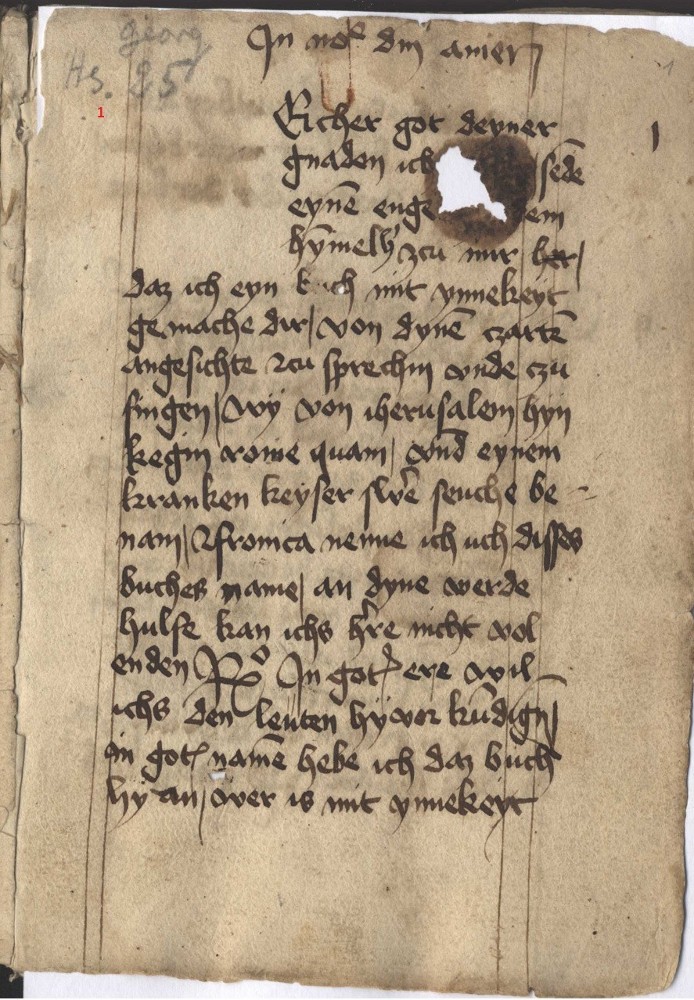 georg
Hs. 25
1
1
In no̅e dn̅i amen
Richer got deyner
gnaden ich sēde
eynē enge em
hȳmelß zcu mir her /
daz ich eyn b ch mit ynnekeyt
gemache dir / von dynē czartē
angesichte zcu sprechin vnde czu
singen / Wy von iherusalem hyn
kegin rome quam / vnd eynem
kranken keyser swe̅r seuche be
nam / nenne ich uch disses
buches name / an dyne werde
hulfe kan ichs he̅re nicht vol
enden In got ere wil
ichs den leuten hy vor kūdign /
in got namē hebe ich daz buch
hy an / wer is mit ynnekeyt